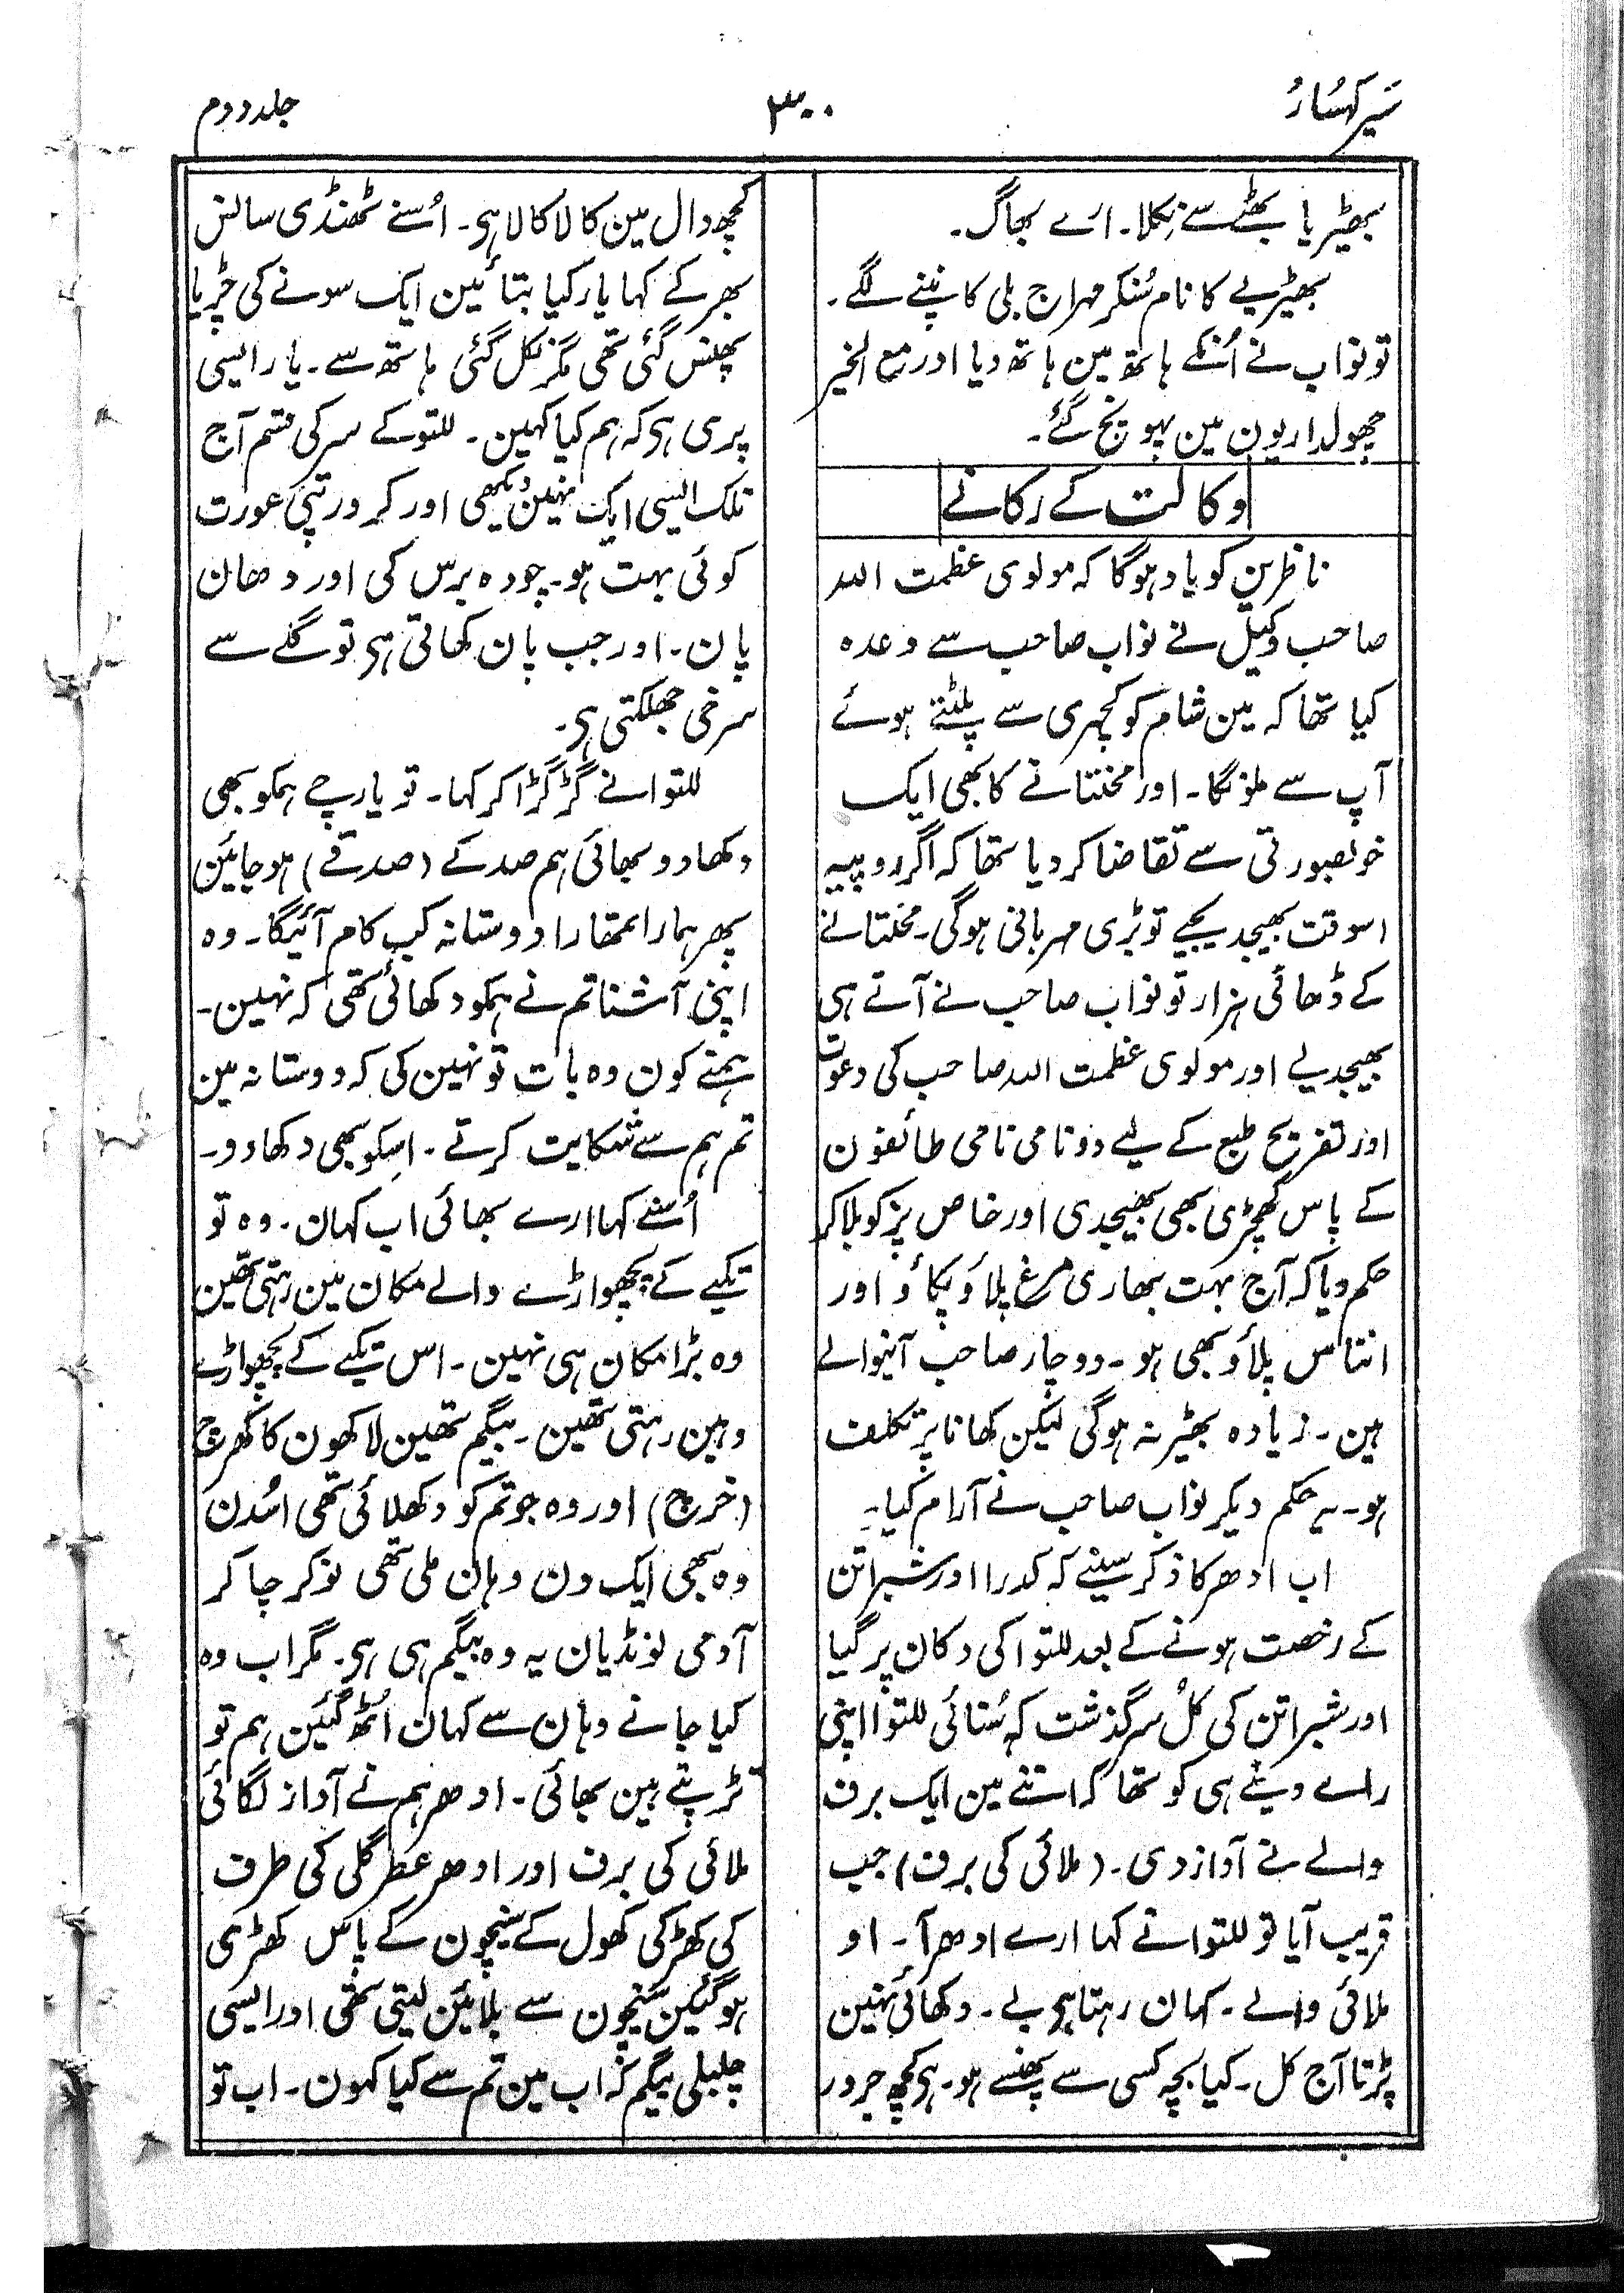 سیر کہسار
۳۰۰
جلد دوم
بھیڑیا بھٹے سے نکلا۔ ارے بھاگ۔
بھیڑیے کا نام سُنکر مہراج بلی کانپنے لگے۔
تو نواب نے اُنکے ہاتھ مین ہاتھ دیا اور مع الخیر
چھولداریون مین پہونچ گئے۔
وکالت کے رکانے
ناظرین کو یاد ہوگا کہ مولوی عظمت اللہ
صاحب وکیل نے نواب صاحب سے وعدہ
کیا تھا کہ مین شام کو کچہری سے پلٹتے ہوئے
آپ سے ملونگا۔ اور محنتانے کا بھی ایک
خوبصورتی سے تقاضا کر دیا تھا کہ اگر روپیہ
اسوقت بھیجدیجیے تو بڑی مہربانی ہوگی۔ محنتانے
کے ڈھائی ہزار تو نواب صاحب نے آتے ہی
بھیجدیے اور مولوی عظمت اللہ صاحب کی دعوت
اور تفریح طبع کے لیے دو نامی نامی طائفون
کے پاس کھچڑی بھی بھیجدی اور خاص پز کو بلا کر
حکم دیا کہ آج بہت بھاری مرغ پلاؤ پکاؤ اور
انناس پلاؤ بھی ہو۔ دو چار صاحب آنیوالے
ہین۔ زیادہ بھیڑ نہ ہوگی لیکن کھانا پر تکلف
ہو۔ یہ حکم دیکر نواب صاحب نے آرام کیا۔
اب ادھر کا ذکر سینے کہ کدرا اور شبراتن
کے رخصت ہونے کے بعد للتوا کی دکان پر گیا
اور شبراتن کی کل سرگذشت کہ سُنائی للتوا اپنی
راے دینے ہی کو تھا کہ اتنے مین ایک برف
والے نے آواز دی۔ (ملائی کی برف) جب
قریب آیا تو للتوا نے کہا ارے ادھر آ۔ او
ملائی والے۔ کہان رہتا ہی بے۔ دکھائی نہین
پڑتا آج کل۔ کیا بچہ کسی سے پھنسے ہو۔ ہی کچھ جرور
کچھ دال مین کالا کالا ہی۔ اُسنے ٹھنڈی سانس
بھر کے کہا یار کیا بتائین ایک سونے کی چڑیا
پھنس گئی تھی مگر نکل گئی ہاتھ سے۔ یار ایسی
پری ہی کہ ہم کیا کہین۔ للتو کے سر کی قسم آج
تلک ایسی ایک نہین دیکھی اور کرورتپی عورت
کوئی بہت ہو۔ چودہ برس کی اور دھان
پان۔ اور جب پان کھاتی ہی تو گلے سے
سرخی جھلکتی ہی۔
للتوا نے گڑگڑا کر کہا۔ تو یار چے ہمکو بھی
دکھا دو بھائی ہم صدکے (صدقے) ہو جائین
پھر ہمارا تمھارا دوستانہ کب کام آئیگا۔ وہ
اپنی آشنا تم نے ہمکو دکھائی تھی کہ نہین۔
ہمنے کون وہ بات تو نہین کی کہ دوستانہ مین
تم ہم سے شکایت کرتے۔ اسکو بھی دکھا دو۔
اُسنے کہا ارے بھائی اب کہان۔ وہ تو
تکیے کے پچھواڑے والے مکان مین رہتی تھین
وہ بڑا مکان ہی نہین۔ اس تکیے کے پچھواڑے
وہین رہتی تھین۔ بیگم تھین لاکھون کا کھرچ
(خرچ) اور وہ جو تم کو دکھلائی تھی اُسدن
وہ بھی ایک دن وہان ملی تھی نوکر چاکر
آدمی لونڈیان یہ وہ بیگم ہی ہی۔ مگر اب وہ
کیا جانے وہان سے کہان اُٹھ گئین ہم تو
تڑپتے ہین بھائی۔ ادھر ہم نے آواز لگائی
ملائی کی برف اور ادھر عطر گلی کی طرف
کی کھڑکی کھول کے سنیچون کے پاس کھڑی
ہو گئین سنیچون سے بلائین لیتی تھی اور ایسی
چلبلی بیگم کہ اب مین تم سے کیا کہون۔ اب تو